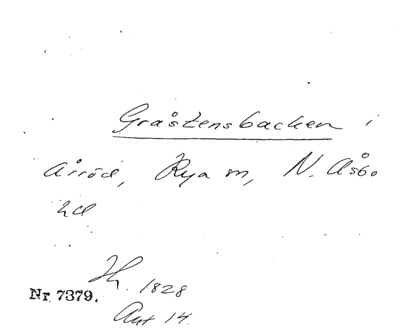 Gråstensbacken i
Årröd, Rya sn, N. Åsbo
hd
Nr 7379.
H. 1828
Ant 14